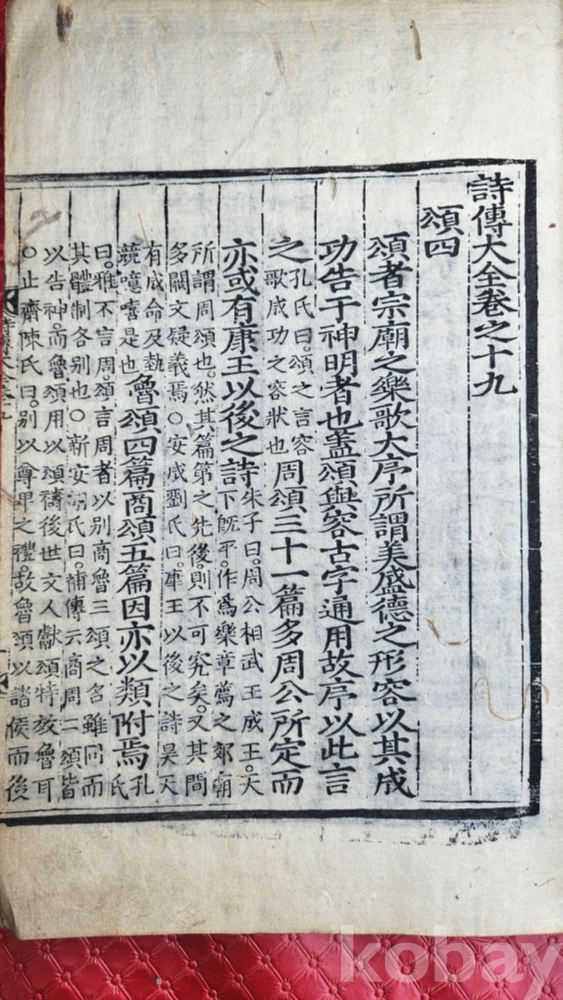 詩傳大全卷之十九
頌四
頌者宗廟之樂歌大序所謂美盛德之形容以其成
功告于神明者也蓋頌與容古字通用故序以此言
之孔氏曰頌之言容歌成功之容狀也周頌三十一篇多周公所定而
亦或有康王以後之詩朱子曰周公相武王成王天下旣平作爲樂章薦之郊廟
所謂周頌也然其篇第之先後則不可究矣又其間
多闕文疑義焉○安成劉氏曰康王以後之詩昊天
有成命及執競噫嘻是也魯頌四篇商頌五篇因亦以類附焉孔氏
曰雅不言周頌言周者以別商魯三頌之名雖同而
其體制各別也○新安胡氏曰補傳云商周二頌皆
以告神而魯頌用以頌禱後世文人獻頌特效魯耳
○止齋陳氏曰別以尊卑之禮故魯頌以諸侯而後
kobay